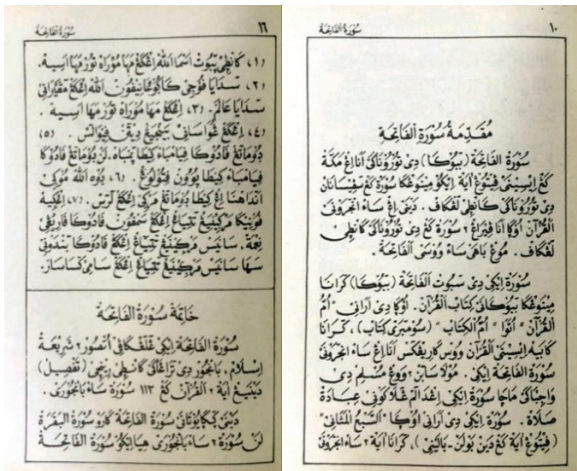 ١٠ سُوْرَةُ الْفَاتِحَة
مُقَدِّمَةُ سُوْرَةِ الْفَاتِحَةِ
سُوْرَةُ الْفَاتِحَة (ببُوْكَا) دِيْ تُوْرُوْنَاكَيْ اَنَا اِڠْ مَكَّة
كَڠْ اِيْسِيْنَيْ ڤِيْتُوڠْ اٰيَة اِيْكُوْ مِيْنُوْڠْكَا سُوْرَة كَڠْ
دِيْ تُوْرُوْنَاكَيْ كَانْطِيْ لَڠْكَاڤ. دَيْنَيْ اِڠْ سَاءْ اَنْجَرَوْنَيْ
الْقُرْآن اُوْڮَا اَنَا ڤِيْرَاڠ٢ سُوْرَة كَڠْ دِيْ تُوْرُوْنَاكَيْ كَانْطِيْ
لَڠْكَاڤ. مُوْڠْ بَاهَيْ سَاءْ وُوْسَيْ الْفَاتِحَة.
سُوْرَة اِيْكِيْ دِيْ سَبُوْت الْفَاتِحَة (ببُوْكَا) كَرَانَا
مِيْنُوْڠْكَا ببُوْكَانَيْ كِتَابُ الْقُرْآن. اُوْڮَا دِيْ اَرَانِيْ "اُمُّ
الْقُرْآن" اُتَوَا "اُمُّ الْكِتَاب" (سُوْمْبَرَيْ كِتَاب)، كَرَانَا
كَابَيْه اِيْسِيْنَيْ الْقُرْآن وُوْس اَنَا اِڠْ سَاءْ اَنْجَرَوْنَيْ
سُوْرَة الْفَاتِحَة اِيْكِيْ. مُوْلَا سَابَنْ٢ وَوڠْ مُسْلِمْ دِيْ
وَاجِبَاكَيْ مَاچَا سُوْرَة اِيْكِيْ اِڠْدَالَمْ عِبَادَة
صَلَاة. سُوْرَة اِيْكِيْ دِيْ اَرَانِيْ اُوْڮَا "السَّبْعُ الْمَثَانِيْ"
(ڤِيْتُوڠْ اٰيَة كَڠْ دَيْنْ بَوْلَنْ-بَالَيْنِيْ)، كَرَانَا اٰيَة٢ سَاءْ اَنْجَرَوْنَيْ
١٦ سُوْرَةُ الْفَاتِحَة
(١) كَانْطِيْ ۑبُوْت اَسْمَا اللّٰه اِڠْكَڠْ مَهَا مُوْرَاه تُوْرْ مَهَا اَسِيْه.
(٢) سَدَايَا ڤُوْجِيْ كَاڮُوْڠَانِيْڤُوْن اللّٰه اِڠْكَڠْ مَڠَيْرَانِيْ
سَدَايَا عَالَمْ. (٣) اِڠْكَڠْ مَهَا مُوْرَاه تُوْرْ مَهَا اَسِيْه.
(٤) اِڠْكَڠْ ڠُوَاسَانِيْ ڤِيْوَالَسْ. (٥)
دُوْمَاتَڠْ ڤَادُوْكَا ڤِيَامْبَاه كِيْطَا ۑمْبَاه، لَنْ دُوْمَاتَڠْ ڤَادُوْكَا
ڤِيَامْبَاه كِيْطَا ۑوُوْن ڤِيْتُوْلُوڠْ. (٦) اللّٰه مُوْڮِيْ
اِڠْ كِيْطَا دُوْمَاتَڠْ مَرْڮِيْ اِڠْكَڠْ لَرَسْ. (٧)
اِڠْكَڠْ ڤَادُوْكَا ڤَارِيْڠِيْ
نِعْمَة. سَانَيْس تِيْيَاڠْ اِڠْكَڠْ ڤَادُوْكَا بَنْدَوْنِيْ
سَهَا سَانَيْس تِيْيَاڠْ اِڠْكَڠْ سَامِيْ كَسَاسَارْ.
خَاتِمَة سُوْرَة الْفَاتِحَة
سُوْرَة الْفَاتِحَة اِيْكِيْ اُنْصُوْر٢ شَرِيْعَة
اِسْلَام، بَانْجُوْر دِيْ تَرَاڠَاكَيْ كَانْطِيْ رِيْنْچِيْ (تَفْصِيْل)
دَيْنَيْڠْ اٰيَة٢ الْقُرْآن كَڠْ ١١٣ سُوْرَة سَاءْ بَانْجُوْرَيْ.
دَيْنَيْ ڮَڮَايُوْتَانَيْ سُوْرَة الْفَاتِحَة كَارَوْ سُوْرَة الْبَقَرَة
لَنْ سُوْرَة٢ سَاءْ بَانْجُوْرَيْ، هِيَا اِيْكُوْ سُوْرَة الْفَاتِحَة